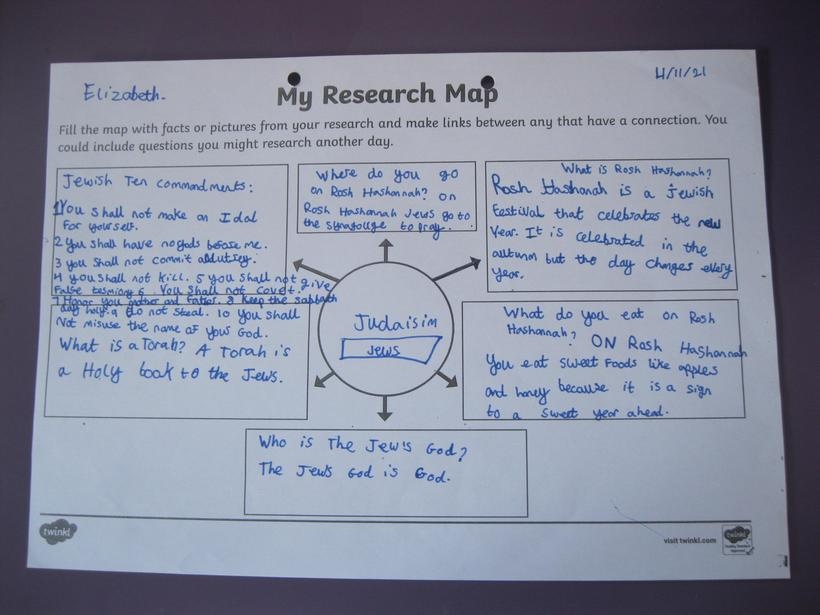 Elizabeth.
My Research Map
4/11/21
Fill the map with facts or pictures from your research and make links between any that have a connection. You
could include questions you might research another day.
Jewish Ten commandments:
1 You shall not make an Idol
for yourself.
2 you shall have no gods before me.
3 you shall not commit
4 you shall not kill. 5 you shall not give
False 6. You shall not covet.
7 Honor you mother and Father. 8 Keep the sabbath
day holy. 9 do not steal. 10 you shall
Not misuse the name of your God.
What is a Torah? A Torah is
a Holy book to the Jews.
Where do you go
on Rosh Hashannah? on
Rosh Hashannah Jews go to
the to pray.
What is Rosh Hashannah?
Rosh Hashanah is a Jewish
Festival that celebrates the new
Year. It is celebrated in the
autumn but the day changes every
year.
Judaisim
Jews
What do you eat on Rosh
Hashannah? ON Rosh Hashannah
You eat sweet foods like apples
and honey because it is a sign
to a sweet year ahead.
Who is The Jew's God?
The Jews God is God.
twinkl
visit twinkl.com
twinkl
Quality Standard
Approved